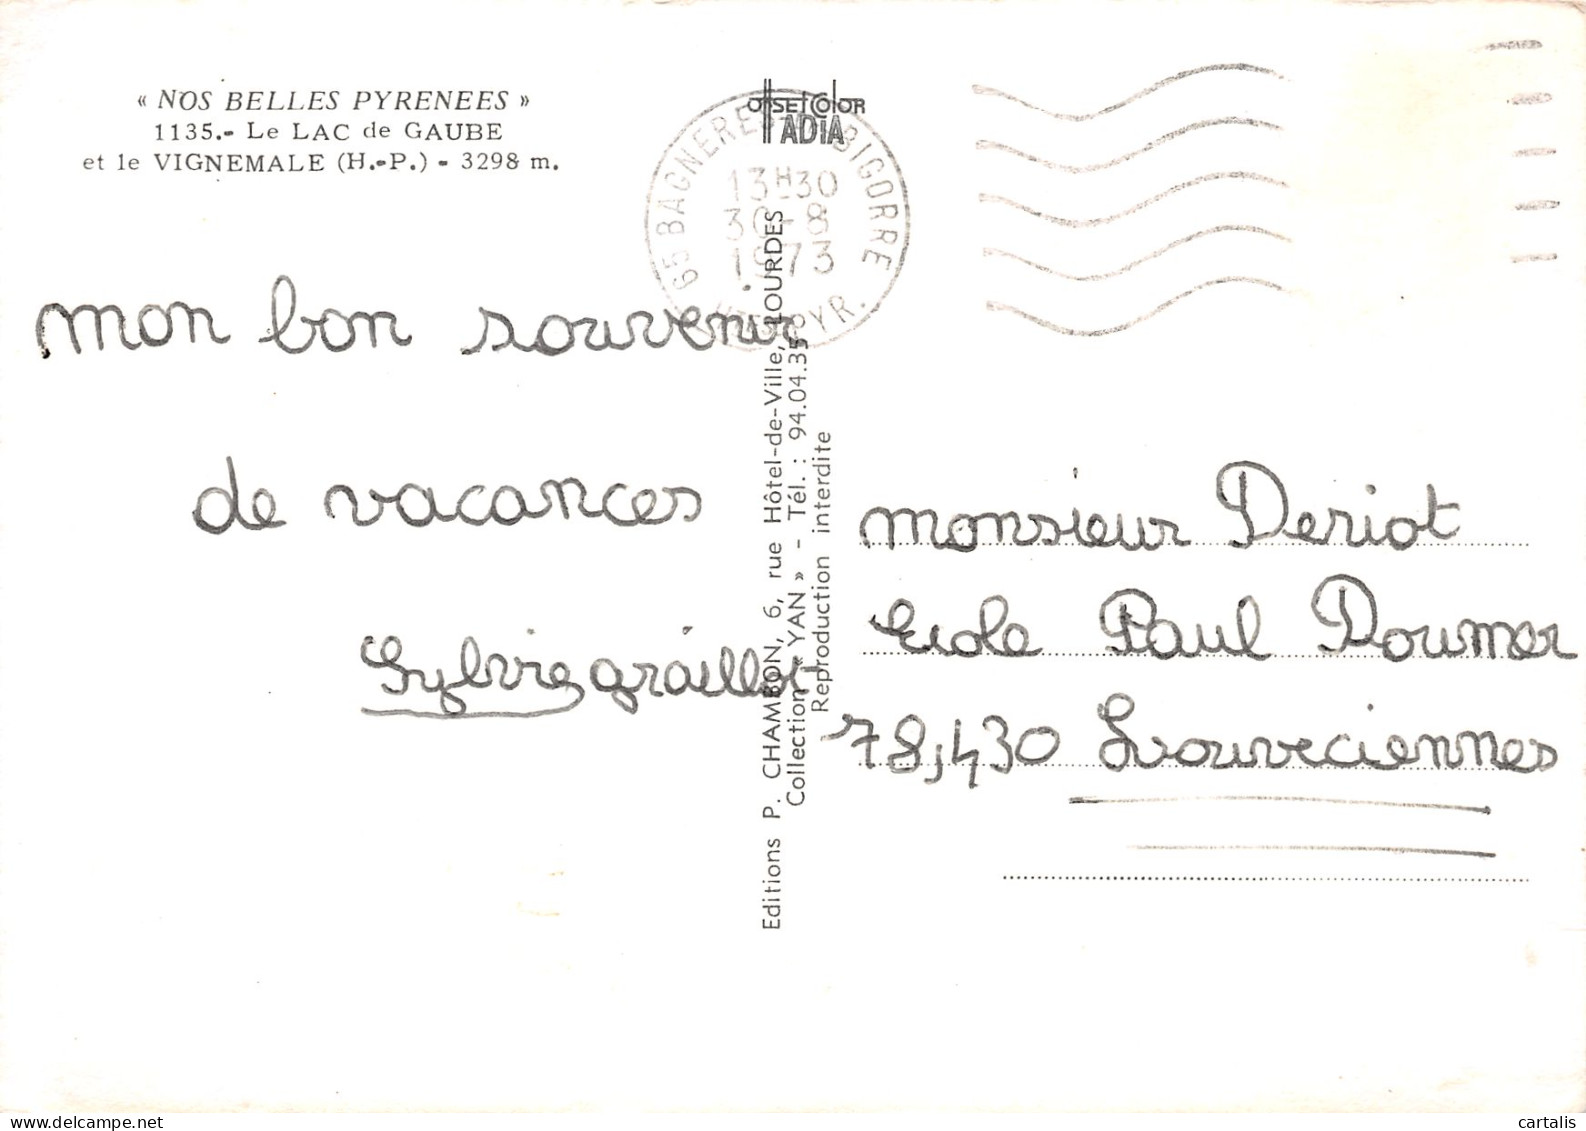 « NOS BELLES PYRENEES »
1135.- Le LAC de GAUBE
et le VIGNEMALE (H.-P.) - 3298 m.
offset color
ADIA
65 BAGNERES BIGORRE
13H30
30-8
1973
PYR.
mon bon souvenir
de vacances
Sylvie graillot
Editions P. CHAMBON, 6, rue Hôtel-de-Ville, LOURDES
Collection « YAN » - Tél. : 94.04.35
Reproduction interdite
monsieur Deriot
Ecole Paul Doumer
78,430 Louveciennes
cartalis